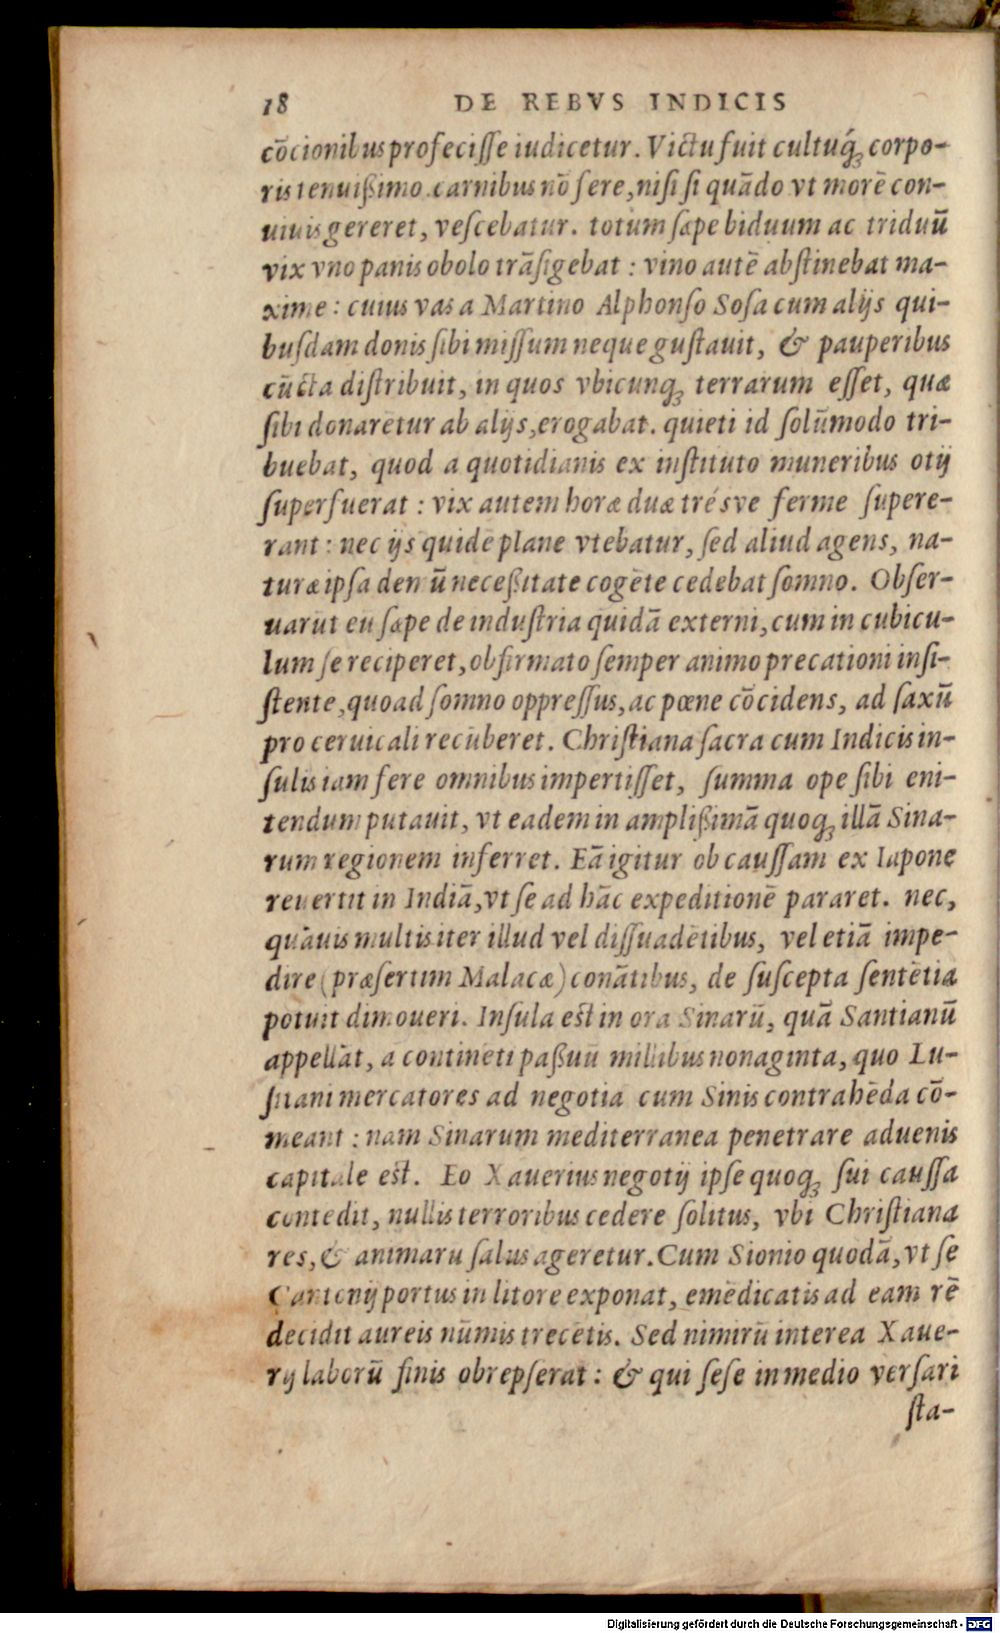 18 DE REBVS INDICIS
cōcionibus profecisse iudicetur. Victu fuit cultuq́ꝫ corpo-
ris tenuißimo. carnibus nō fere, nisi si quādo vt morē con-
uiuis gereret, vescebatur. totum sæpe biduum ac triduū
vix vno panis obolo trāsigebat : vino autē abstinebat ma-
xime : cuius vas a Martino Alphonso Sosa cum alijs qui-
busdam donis sibi missum neque gustauit, & pauperibus
cūcta distribuit, in quos vbicunqꝫ terrarum esset, quæ
sibi donarētur ab alijs, erogabat. quieti id solūmodo tri-
buebat, quod a quotidianis ex instituto muneribus otij
superfuerat : vix autem horæ duæ trésve ferme supere-
rant : nec ijs quidē plane vtebatur, sed aliud agens, na-
turæ ipsa demū neceßitate cogēte cedebat somno. Obser-
uarūt eū sæpe de industria quidā externi, cum in cubicu-
lum se reciperet, obfirmato semper animo precationi insi-
stente, quoad somno oppressus, ac pœne cōcidens, ad saxū
pro ceruicali recūberet. Christiana sacra cum Indicis in-
sulis iam fere omnibus impertisset, summa ope sibi eni-
tendum putauit, vt eadem in amplißimā quoqꝫ illā Sina-
rum regionem inferret. Eā igitur ob caussam ex Iapone
reuertit in Indiā, vt se ad hāc expeditionē pararet. nec,
quāuis multis iter illud vel dissuadētibus, vel etiā impe-
dire (præsertim Malacæ) conātibus, de suscepta sentētia
potuit dimoueri. Insula est in ora Sinarū, quā Santianū
appellāt, a continēti paßuū millibus nonaginta, quo Lu-
sitani mercatores ad negotia cum Sinis contrahēda cō-
meant : nam Sinarum mediterranea penetrare aduenis
capitale est. Eo Xauerius negotij ipse quoqꝫ sui caussa
contēdit, nullis terroribus cedere solitus, vbi Christiana
res, & animarū salus ageretur. Cum Sionio quodā, vt se
Cantonij portus in litore exponat, emēdicatis ad eam rē
decidit aureis nūmis trecētis. Sed nimirū interea Xaue-
rij laborū finis obrepserat : & qui sese in medio versari
sta-
Digitalisierung gefördert durch die Deutsche Forschungsgemeinschaft - DFG